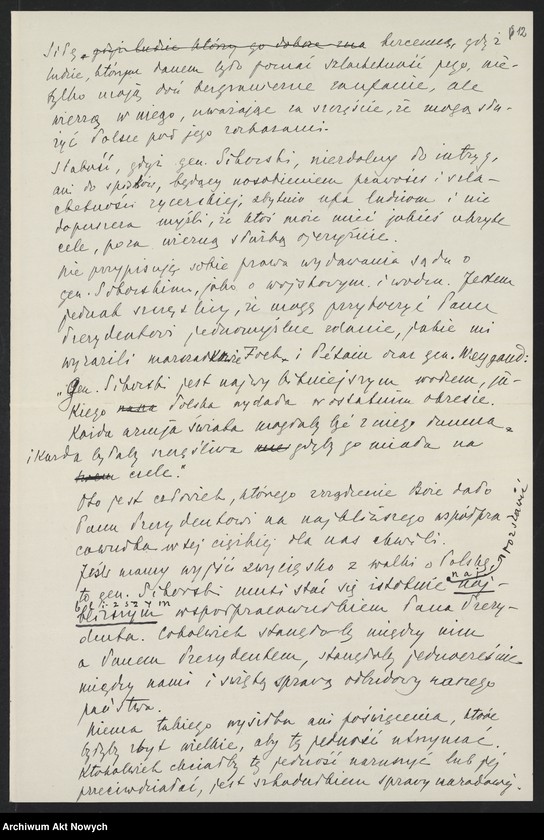 12
Siłą, gdyż ludzie którzy go dobrze zna bezcenną, gdyż
ludzie, którym danem było poznać szlachetność jego, nie-
tylko mają doń bezgraniczne zaufanie, ale
wierzą w niego, uważając za szczęście, że mogą słu-
żyć Polsce pod jego rozkazami.
Słabość, gdyż gen. Sikorski, niezdolny do intryg,
ani do spisków, będący uosobieniem prawości i szla-
chetności rycerskiej, zbytnio ufa ludziom i nie
dopuszcza myśli, że ktoś może mieć jakieś ukryte
cele, poza wierną służbą ojczyźnie.
Nie przypisuję sobie prawa wydawania sądu o
gen. Sikorskim, jako o wojskowym i wodzu. Jestem
jednak szczęśliwy, że mogę przytoczyć Panu
Prezydentowi jednomyślne zdanie, jakie mi
wyrazili marszałkowie Foch i Pétain oraz gen. Weygand:
„Gen. Sikorski jest najwybitniejszym wodzem, ja-
kiego Polska wydała w ostatnim okresie.
Każda armja świata mogłaby być z niego dumna
i każda byłaby szczęśliwa gdyby go miała na
czele."
Oto jest człowiek, którego zrządzenie Boże dało
Panu Prezydentowi na najbliższego współpra-
cownika w tej ciężkiej dla nas chwili.
Jeśli mamy wyjść zwycięsko z walki o Polskę,
to gen. Sikorski musi stać się istotnie naj-
bliższym współpracownikiem Pana Prezy-
denta. Cokolwiek stanęłoby między nim
a Panem Prezydentem, stanęłoby jednocześnie
między nami i świętą sprawą odbudowy naszego
państwa.
Niema takiego wysiłku ani poświęcenia, które
byłyby zbyt wielkie, aby tę jedność utrzymać.
Ktokolwiek chciałby tę jedność naruszyć lub jej
przeciwdziałać, jest szkodnikiem sprawy narodowej.
Archiwum Akt Nowych